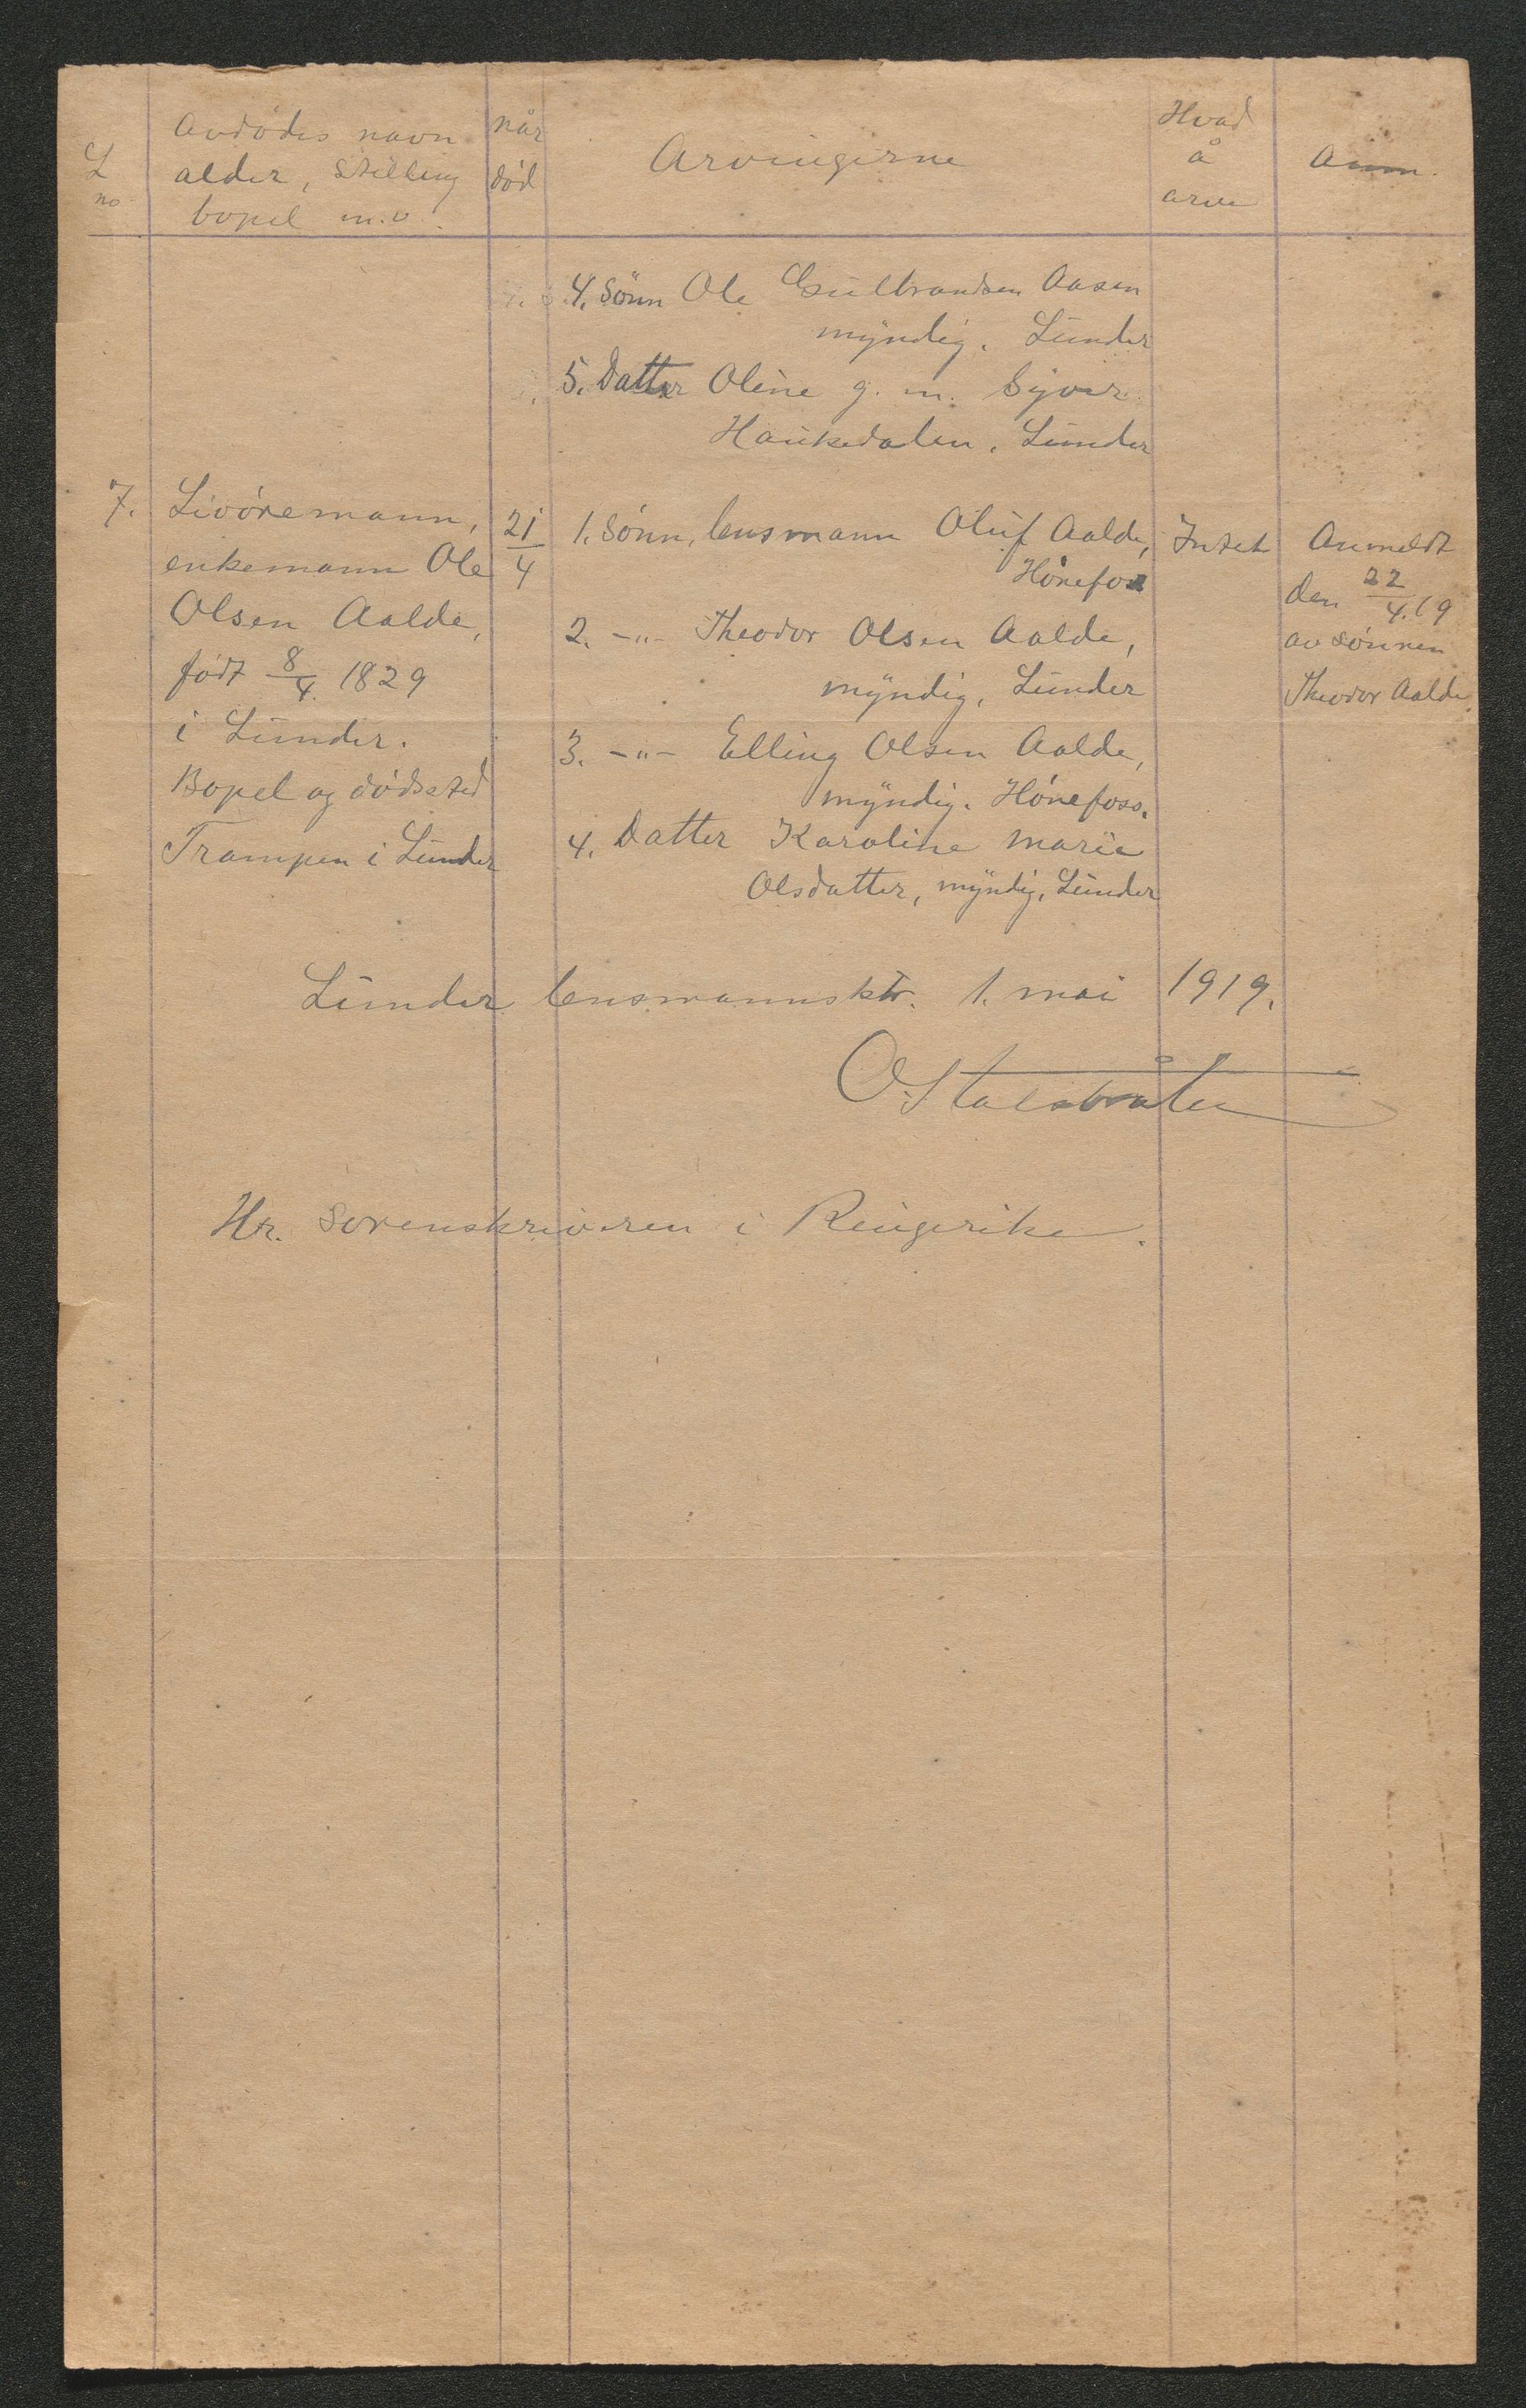 L no
Avdødes navn
alder, stilling
bopel m.v.
når
død
Arvingerne
Hvad
å
arve
Anm.
4. Sønn Ole Gulbrandsen Aasen
myndig. Lunder
5. Datter Oline g. m. Syver
Haukedalen, Lunder
7. Livøremann,
enkemann Ole
Olsen Aalde,
født 8/4. 1829
i Lunder.
Bopel og dødssted
Trampen i Lunder
21/4
1. Sønn, lensmann Oluf Aalde,
Hønefoss
2. -"- Theodor Olsen Aalde,
myndig, Lunder
3. -"- Elling Olsen Aalde,
myndig. Hønefoss.
4. Datter Karoline Marie
Olsdatter, myndig, Lunder
Intet
Anmeldt
den 22/4.19
av sønnen
Theodor Aalde.
Lunder lensmannsktr. 1. mai 1919.
O. Stalsbråten
Hr. Sorenskriveren i Ringerike.